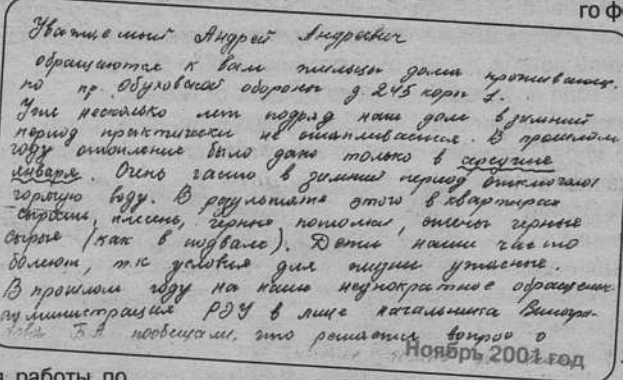 го ф
Уважаемый Андрей Андреевич
обращаются к вам жильцы дома проживающ.
по пр. Обуховской обороны д. 245 корп 1.
Уже несколько лет подряд наш дом в зимний
период практически не отапливается. В прошлом
году отопление было дано только в середине
января. Очень часто в зимний период отключают
горячую воду. В результате этого в квартирах
сырость, плесень, чёрные потолки, стены черные
сырые (как в подвале). Дети наши часто
болеют, т.к условия для жизни ужасные.
В прошлом году на наше неоднократное обращение
администрация РЭУ в лице начальника Виногра-
дова Б.А пообещали, что решается вопрос о
Ноябрь 2001 год
работы по